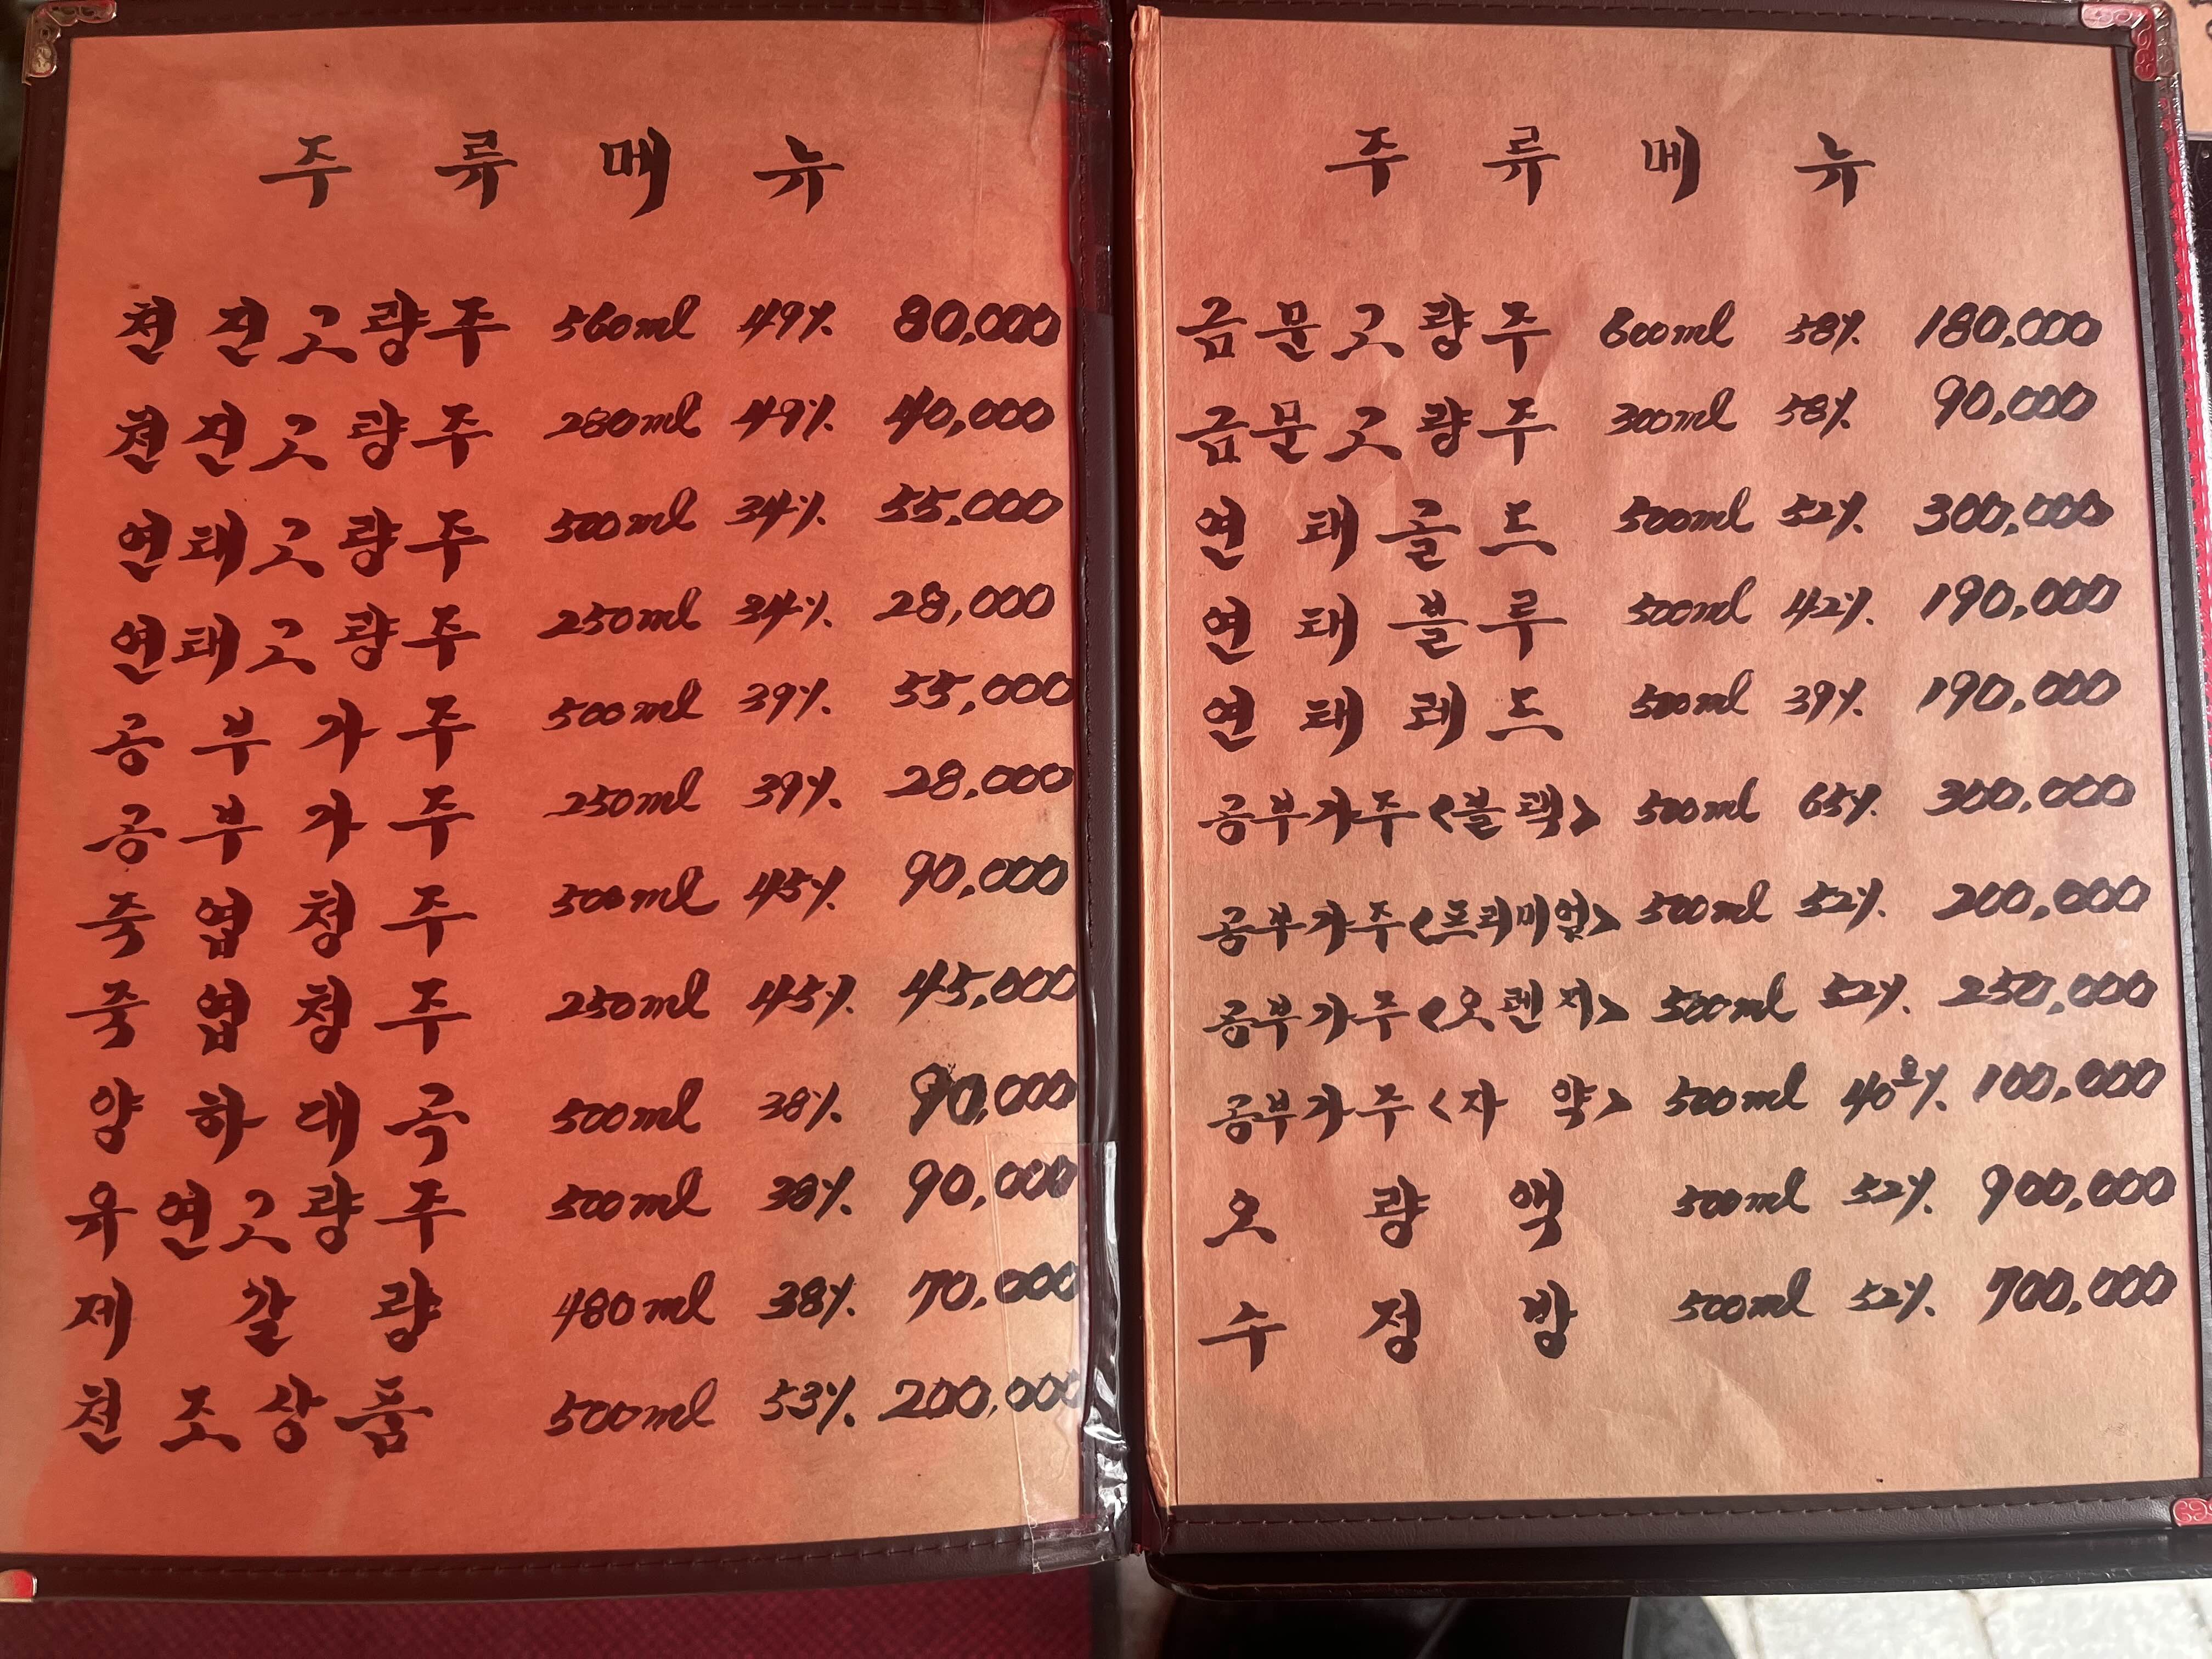 주류메뉴
천진고량주 560ml 49% 80,000
천진고량주 280ml 49% 40,000
연태고량주 500ml 34% 55,000
연태고량주 250ml 34% 28,000
공부가주 500ml 39% 55,000
공부가주 250ml 39% 28,000
죽엽청주 500ml 45% 90,000
죽엽청주 250ml 45% 45,000
양하대곡 500ml 38% 90,000
유연고량주 500ml 38% 90,000
제갈량 480ml 38% 70,000
천조상품 500ml 53% 200,000
주류메뉴
금문고량주 600ml 58% 180,000
금문고량주 300ml 58% 90,000
연태골드 500ml 52% 300,000
연태블루 500ml 42% 190,000
연태레드 500ml 39% 190,000
공부가주<블랙> 500ml 65% 300,000
공부가주<프리미엄> 500ml 52% 200,000
공부가주<오렌지> 500ml 52% 250,000
공부가주<자약> 500ml 40.8% 100,000
오량액 500ml 52% 900,000
수정방 500ml 52% 700,000